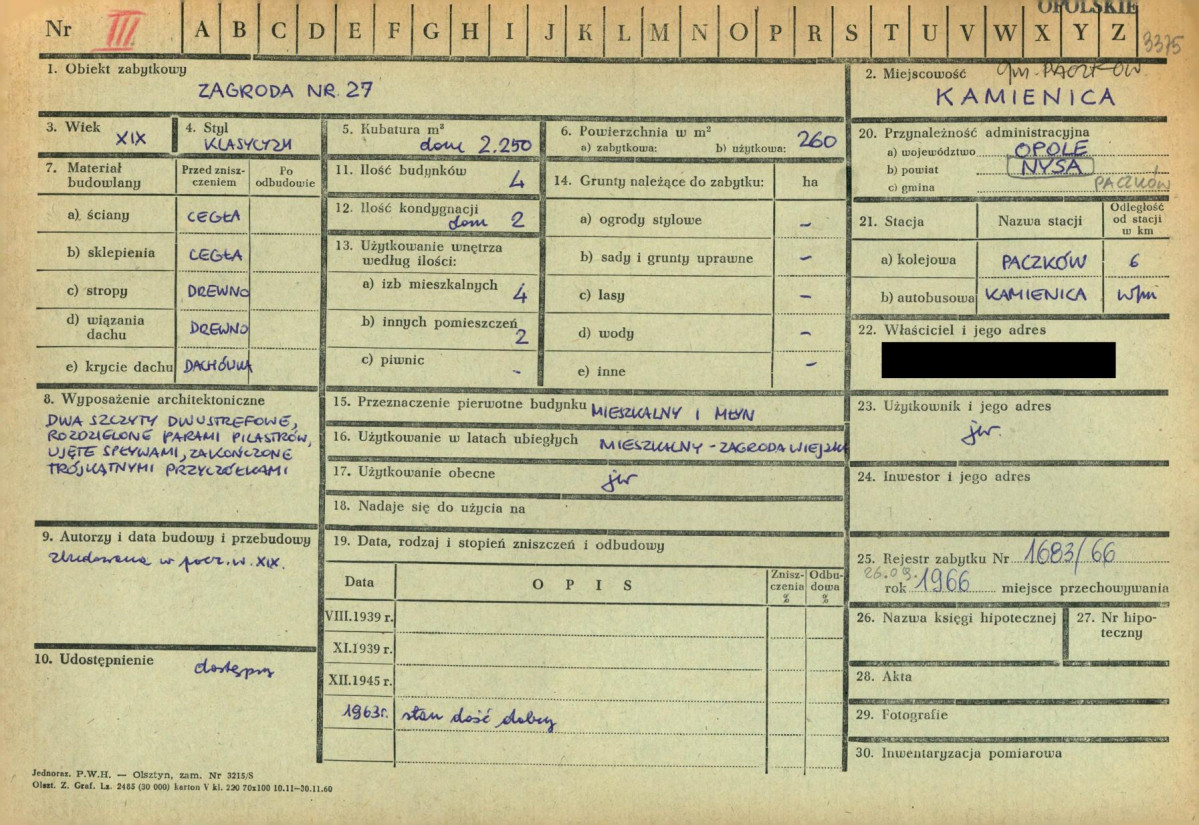 OPOLSKIE
Nr III A B C D E F G H I J K L M N O P R S T U V W X Y Z 3375
1. Obiekt zabytkowy
ZAGRODA NR 27
2. Miejscowość gm. PACZKÓW
KAMIENICA
3. Wiek
XIX
4. Styl
KLASYCYZM
5. Kubatura m³
dom 2.250
6. Powierzchnia w m²
a) zabytkowa: b) użytkowa: 260
7. Materiał budowlany
Przed zniszczeniem
Po odbudowie
a) ściany CEGŁA
b) sklepienia CEGŁA
c) stropy DREWNO
d) wiązania dachu DREWNO
e) krycie dachu DACHÓWKA
8. Wyposażenie architektoniczne
DWA SZCZYTY DWUSTREFOWE,
ROZDZIELONE PARAMI PILASTRÓW,
UJĘTE SPŁYWAMI, ZAKOŃCZONE
TRÓJKĄTNYMI PRZYCZÓŁKAMI
9. Autorzy i data budowy i przebudowy
zbudowana w pocz. w. XIX.
10. Udostępnienie
dostępny
11. Ilość budynków 4
12. Ilość kondygnacji
dom 2
13. Użytkowanie wnętrza
według ilości:
a) izb mieszkalnych 4
b) innych pomieszczeń 2
c) piwnic -
14. Grunty należące do zabytku: ha
a) ogrody stylowe -
b) sady i grunty uprawne -
c) lasy -
d) wody -
e) inne -
15. Przeznaczenie pierwotne budynku MIESZKALNY I MŁYN
16. Użytkowanie w latach ubiegłych MIESZKALNY - ZAGRODA WIEJSKA
17. Użytkowanie obecne jw
18. Nadaje się do użycia na
19. Data, rodzaj i stopień zniszczeń i odbudowy
Data OPIS Zniszczenia % Odbudowa %
VIII.1939 r.
XI.1939 r.
XII.1945 r.
1963r. stan dość dobry
20. Przynależność administracyjna
a) województwo OPOLE
b) powiat NYSA
c) gmina PACZKÓW
21. Stacja Nazwa stacji Odległość od stacji w km
a) kolejowa PACZKÓW 6
b) autobusowa KAMIENICA w/m
22. Właściciel i jego adres
23. Użytkownik i jego adres
jw.
24. Inwestor i jego adres
25. Rejestr zabytku Nr 1683/66
26.09.
rok 1966 miejsce przechowywania
26. Nazwa księgi hipotecznej
27. Nr hipoteczny
28. Akta
29. Fotografie
30. Inwentaryzacja pomiarowa
Jednoraz. P.W.H. — Olsztyn, zam. Nr 3215/S
Olszt. Z. Graf. Lz. 2455 (30 000) karton V kl. 220 70x100 10.11—30.11.60